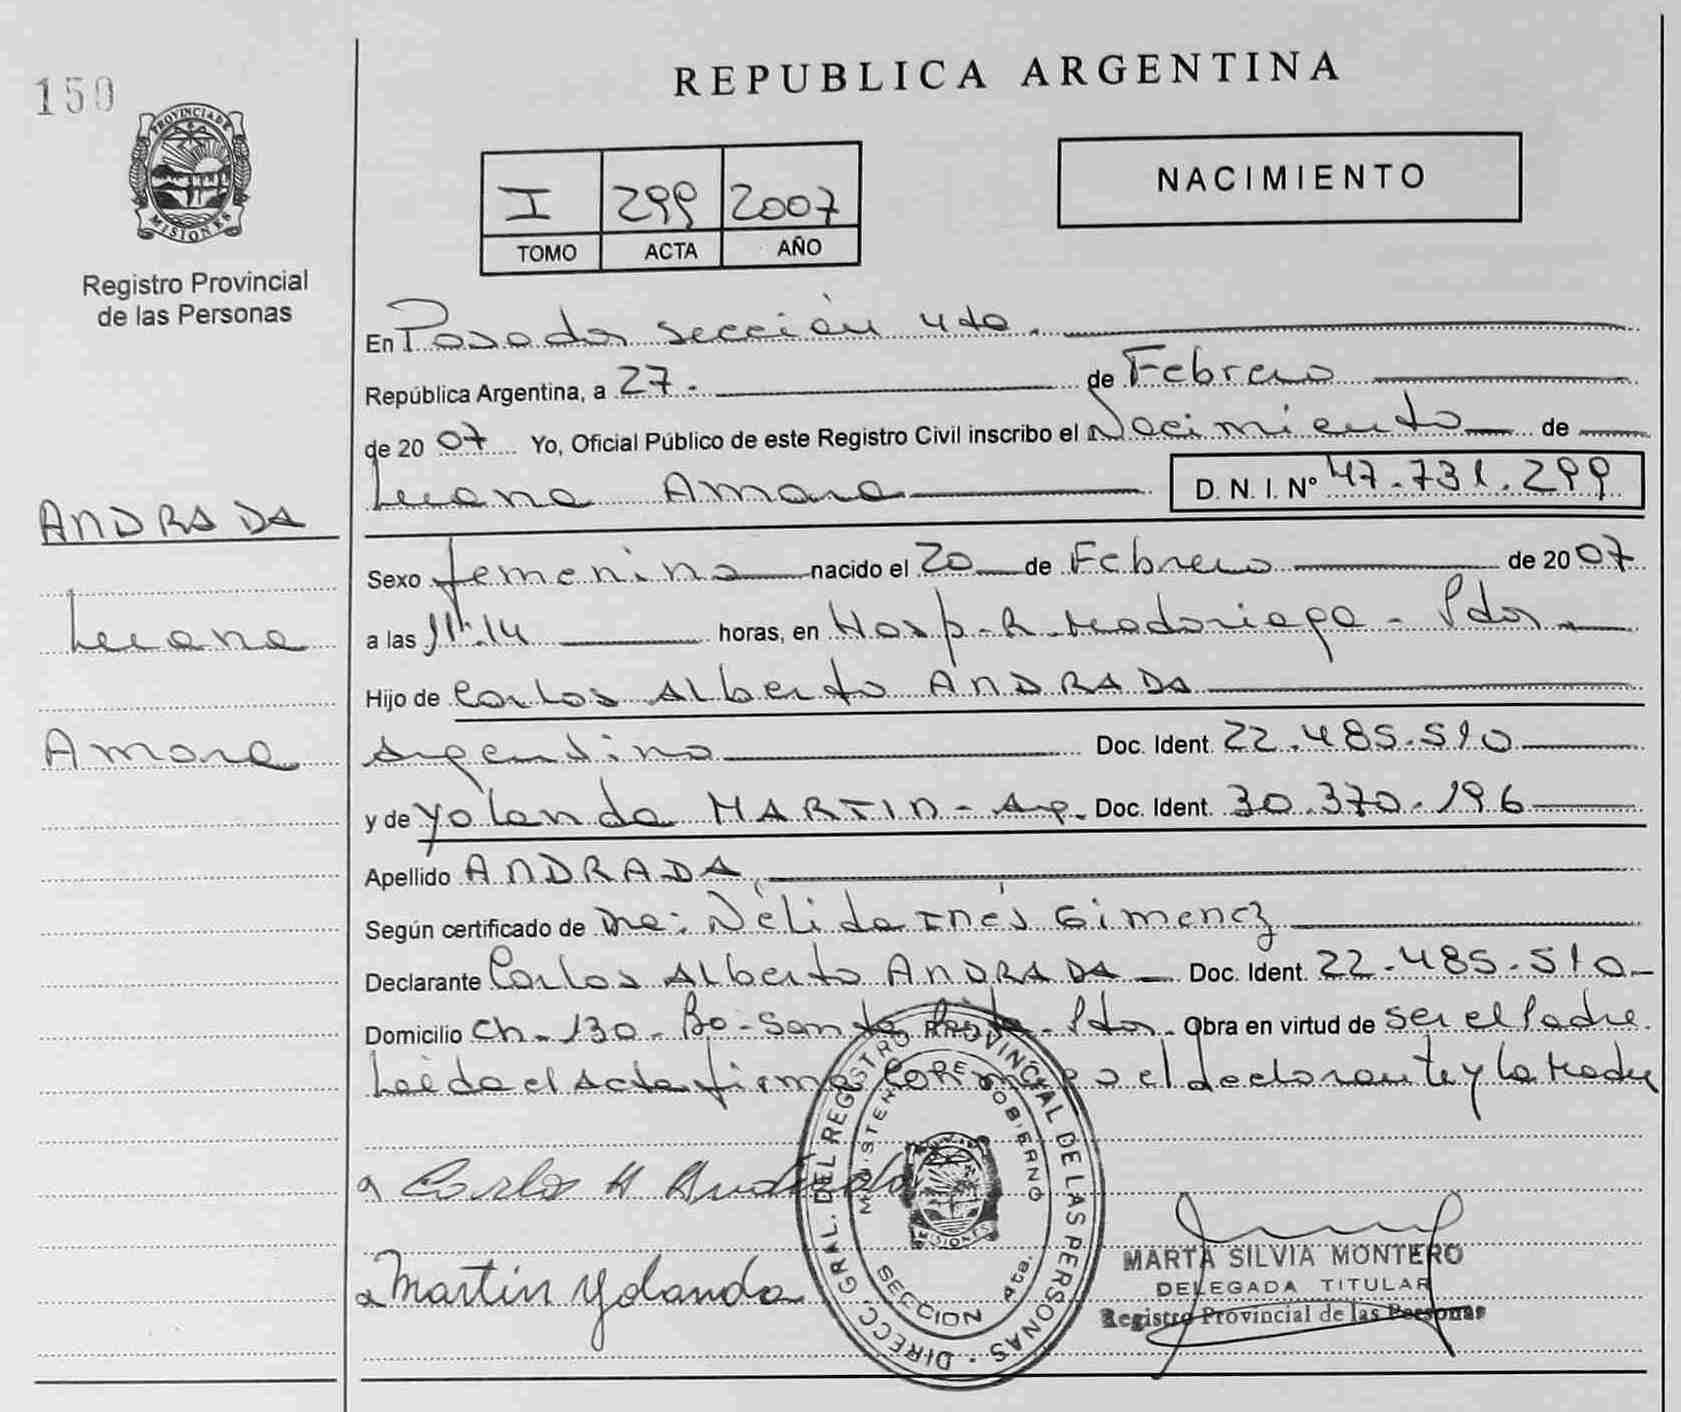 150
PROVINCIA DE
MISIONES
Registro Provincial
de las Personas
REPUBLICA ARGENTINA
I 299 2007
TOMO ACTA AÑO
NACIMIENTO
En Posadas sección 4ta.
República Argentina, a 27.- de Febrero
de 2007 Yo, Oficial Público de este Registro Civil inscribo el Nacimiento de
Luana Amara D. N. I. Nº 47.731.299
ANDRADA
Luana
Amara
Sexo femenino nacido el 20 de Febrero de 2007
a las 11:14 horas, en Hosp. R. Madariaga - Pdas
Hijo de Carlos Alberto ANDRADA
Argentino Doc. Ident. 22.485.510
y de Yolanda MARTIN - Arg. Doc. Ident. 30.370.196
Apellido ANDRADA
Según certificado de Dra: Nélida Inés Gimenez
Declarante Carlos Alberto ANDRADA Doc. Ident. 22.485.510
Domicilio Ch. 130 - Bo - Santa Rita - Pdas. Obra en virtud de ser el Padre.
Leída el Acta firma conmigo el declarante y la Madre
a Carlos A Andrada
a Martin Yolanda
DIRECC. GRAL. DEL REGISTRO PROVINCIAL DE LAS PERSONAS
MINISTERIO DE GOBIERNO
MISIONES
SECCION 4ta.
MARTA SILVIA MONTERO
DELEGADA TITULAR
Registro Provincial de las Personas